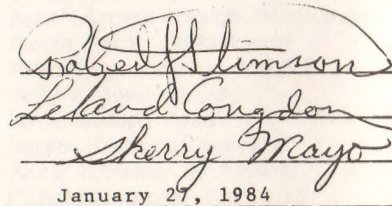 Robert J Stimson
Leland Congdon
Skerry Mayo
January 27, 1984